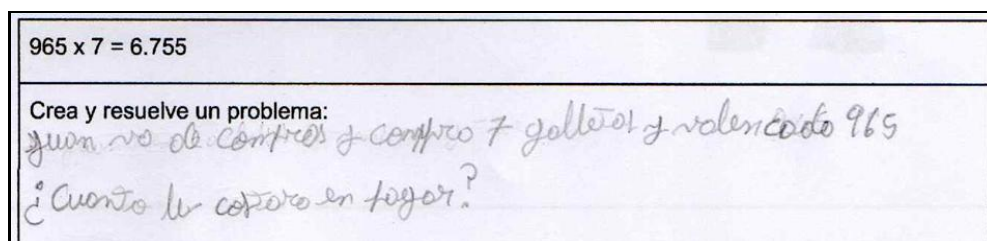 965 x 7 = 6.755
Crea y resuelve un problema:
Juan va de compras y compro 7 galletas y valen cada 965
¿Cuanto le costara en pagar?